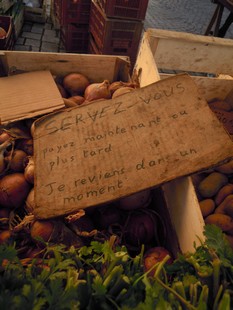 SERVEZ-VOUS
payez maintenant ou
plus tard
Je reviens dans un
moment